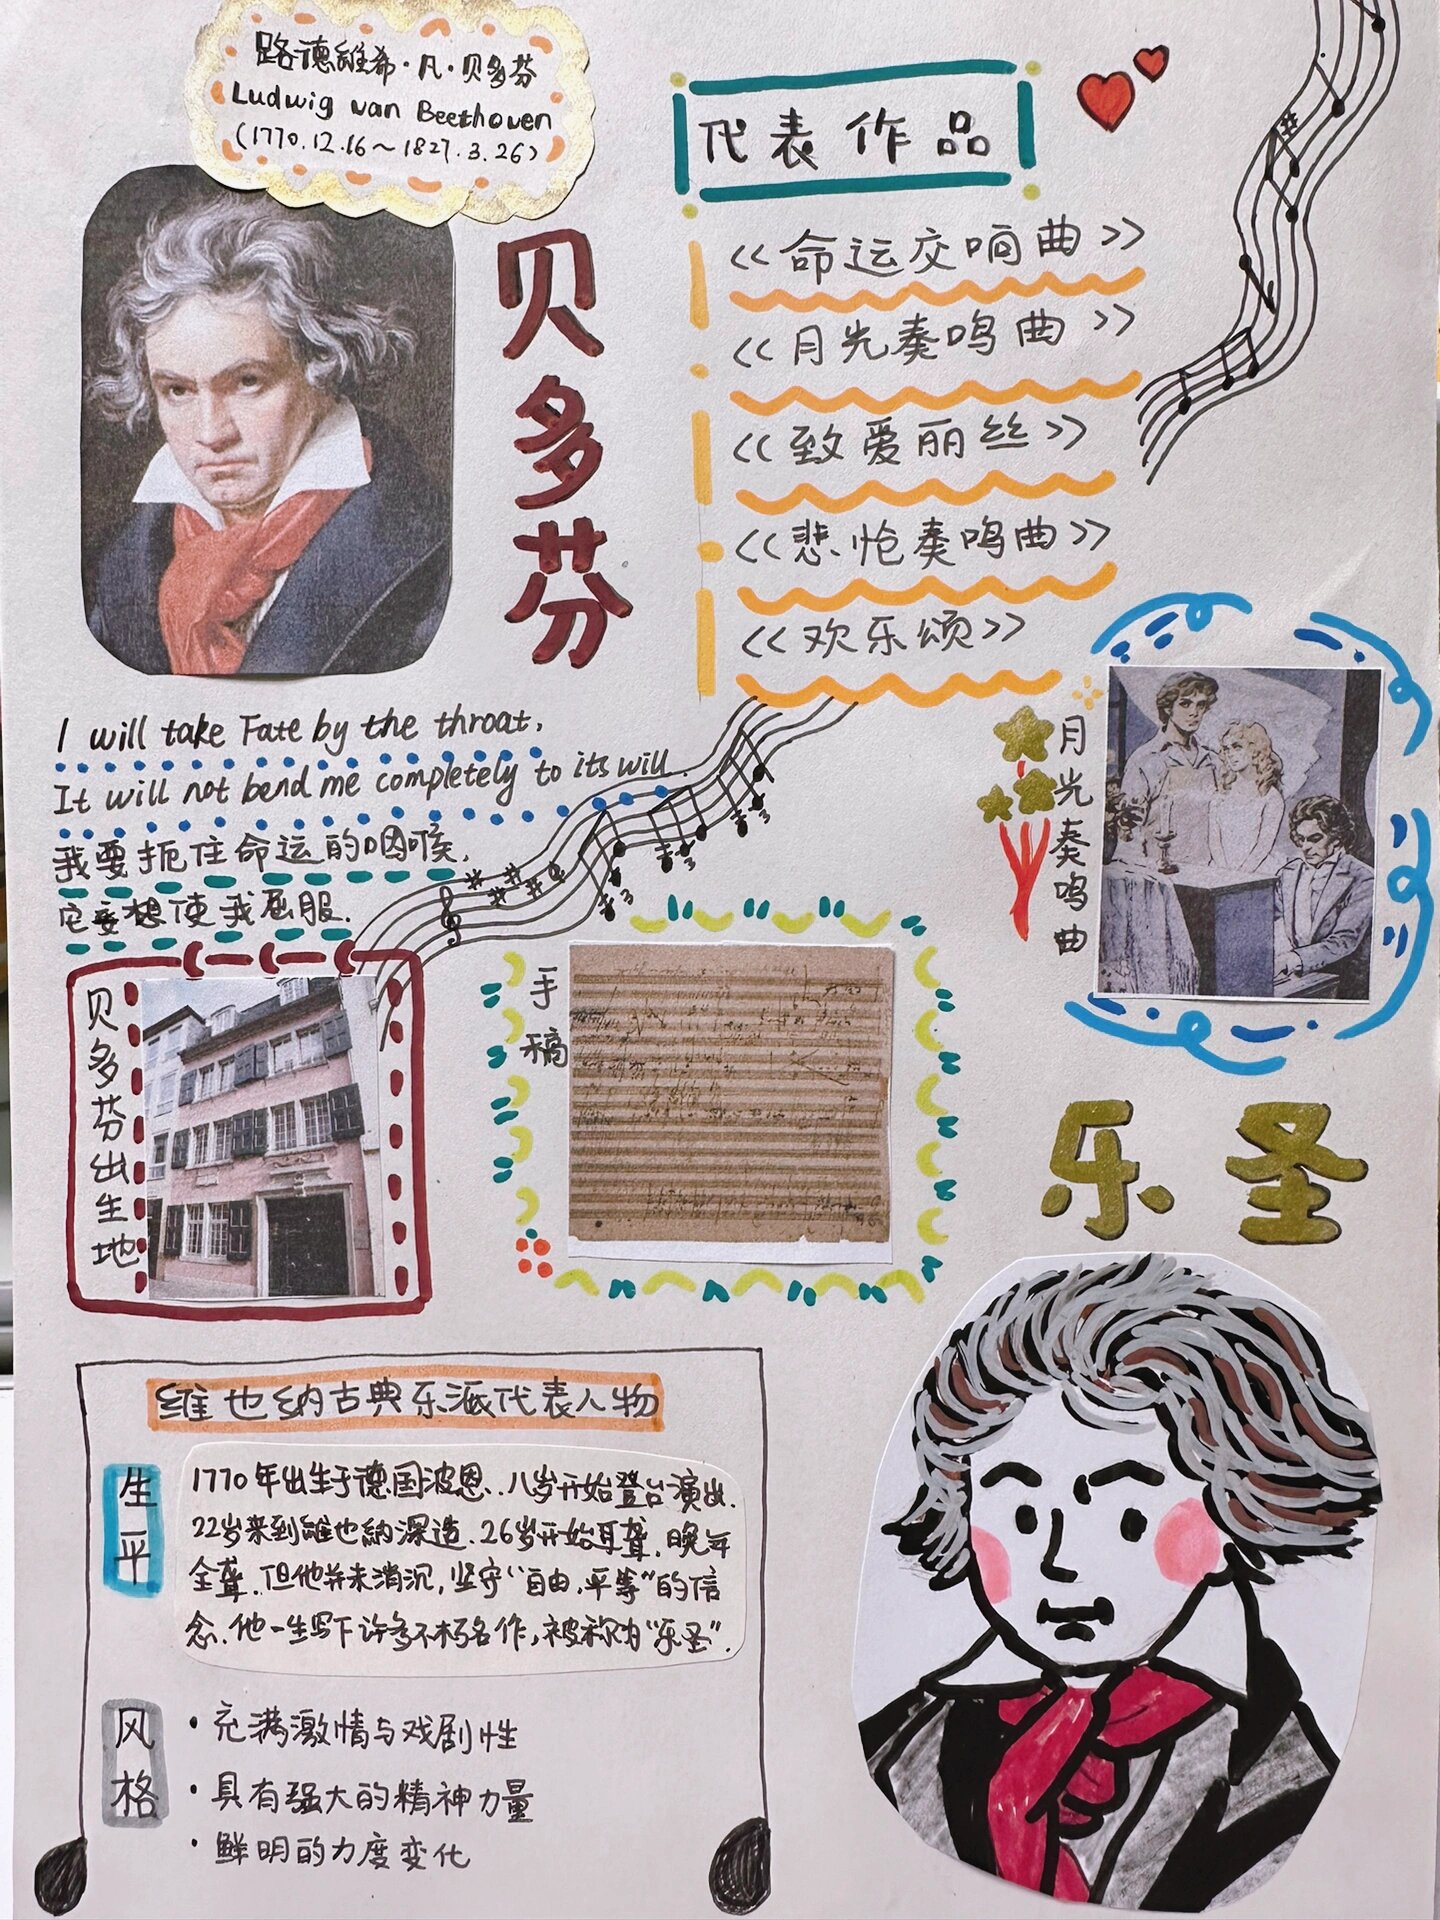 路德維希·凡·贝多芬
Ludwig van Beethoven
(1770.12.16～1827.3.26)
贝多芬
代表作品
<<命运交响曲>>
<<月光奏鸣曲>>
<<致爱丽丝>>
<<悲怆奏鸣曲>>
<<欢乐颂>>
I will take Fate by the throat,
It will not bend me completely to its will.
我要扼住命运的咽喉,
它妄想使我屈服.
月光奏鸣曲
贝多芬出生地
手稿
乐圣
维也纳古典乐派代表人物
生平
1770年出生于德国波恩.八岁开始登台演出.
22岁来到維也納深造.26岁开始耳聋.晚年
全聋.但他并未消沉,坚守“自由,平等”的信
念.他一生写下许多不朽名作,被称为“乐圣”.
风格
·充满激情与戏剧性
·具有强大的精神力量
·鲜明的力度变化